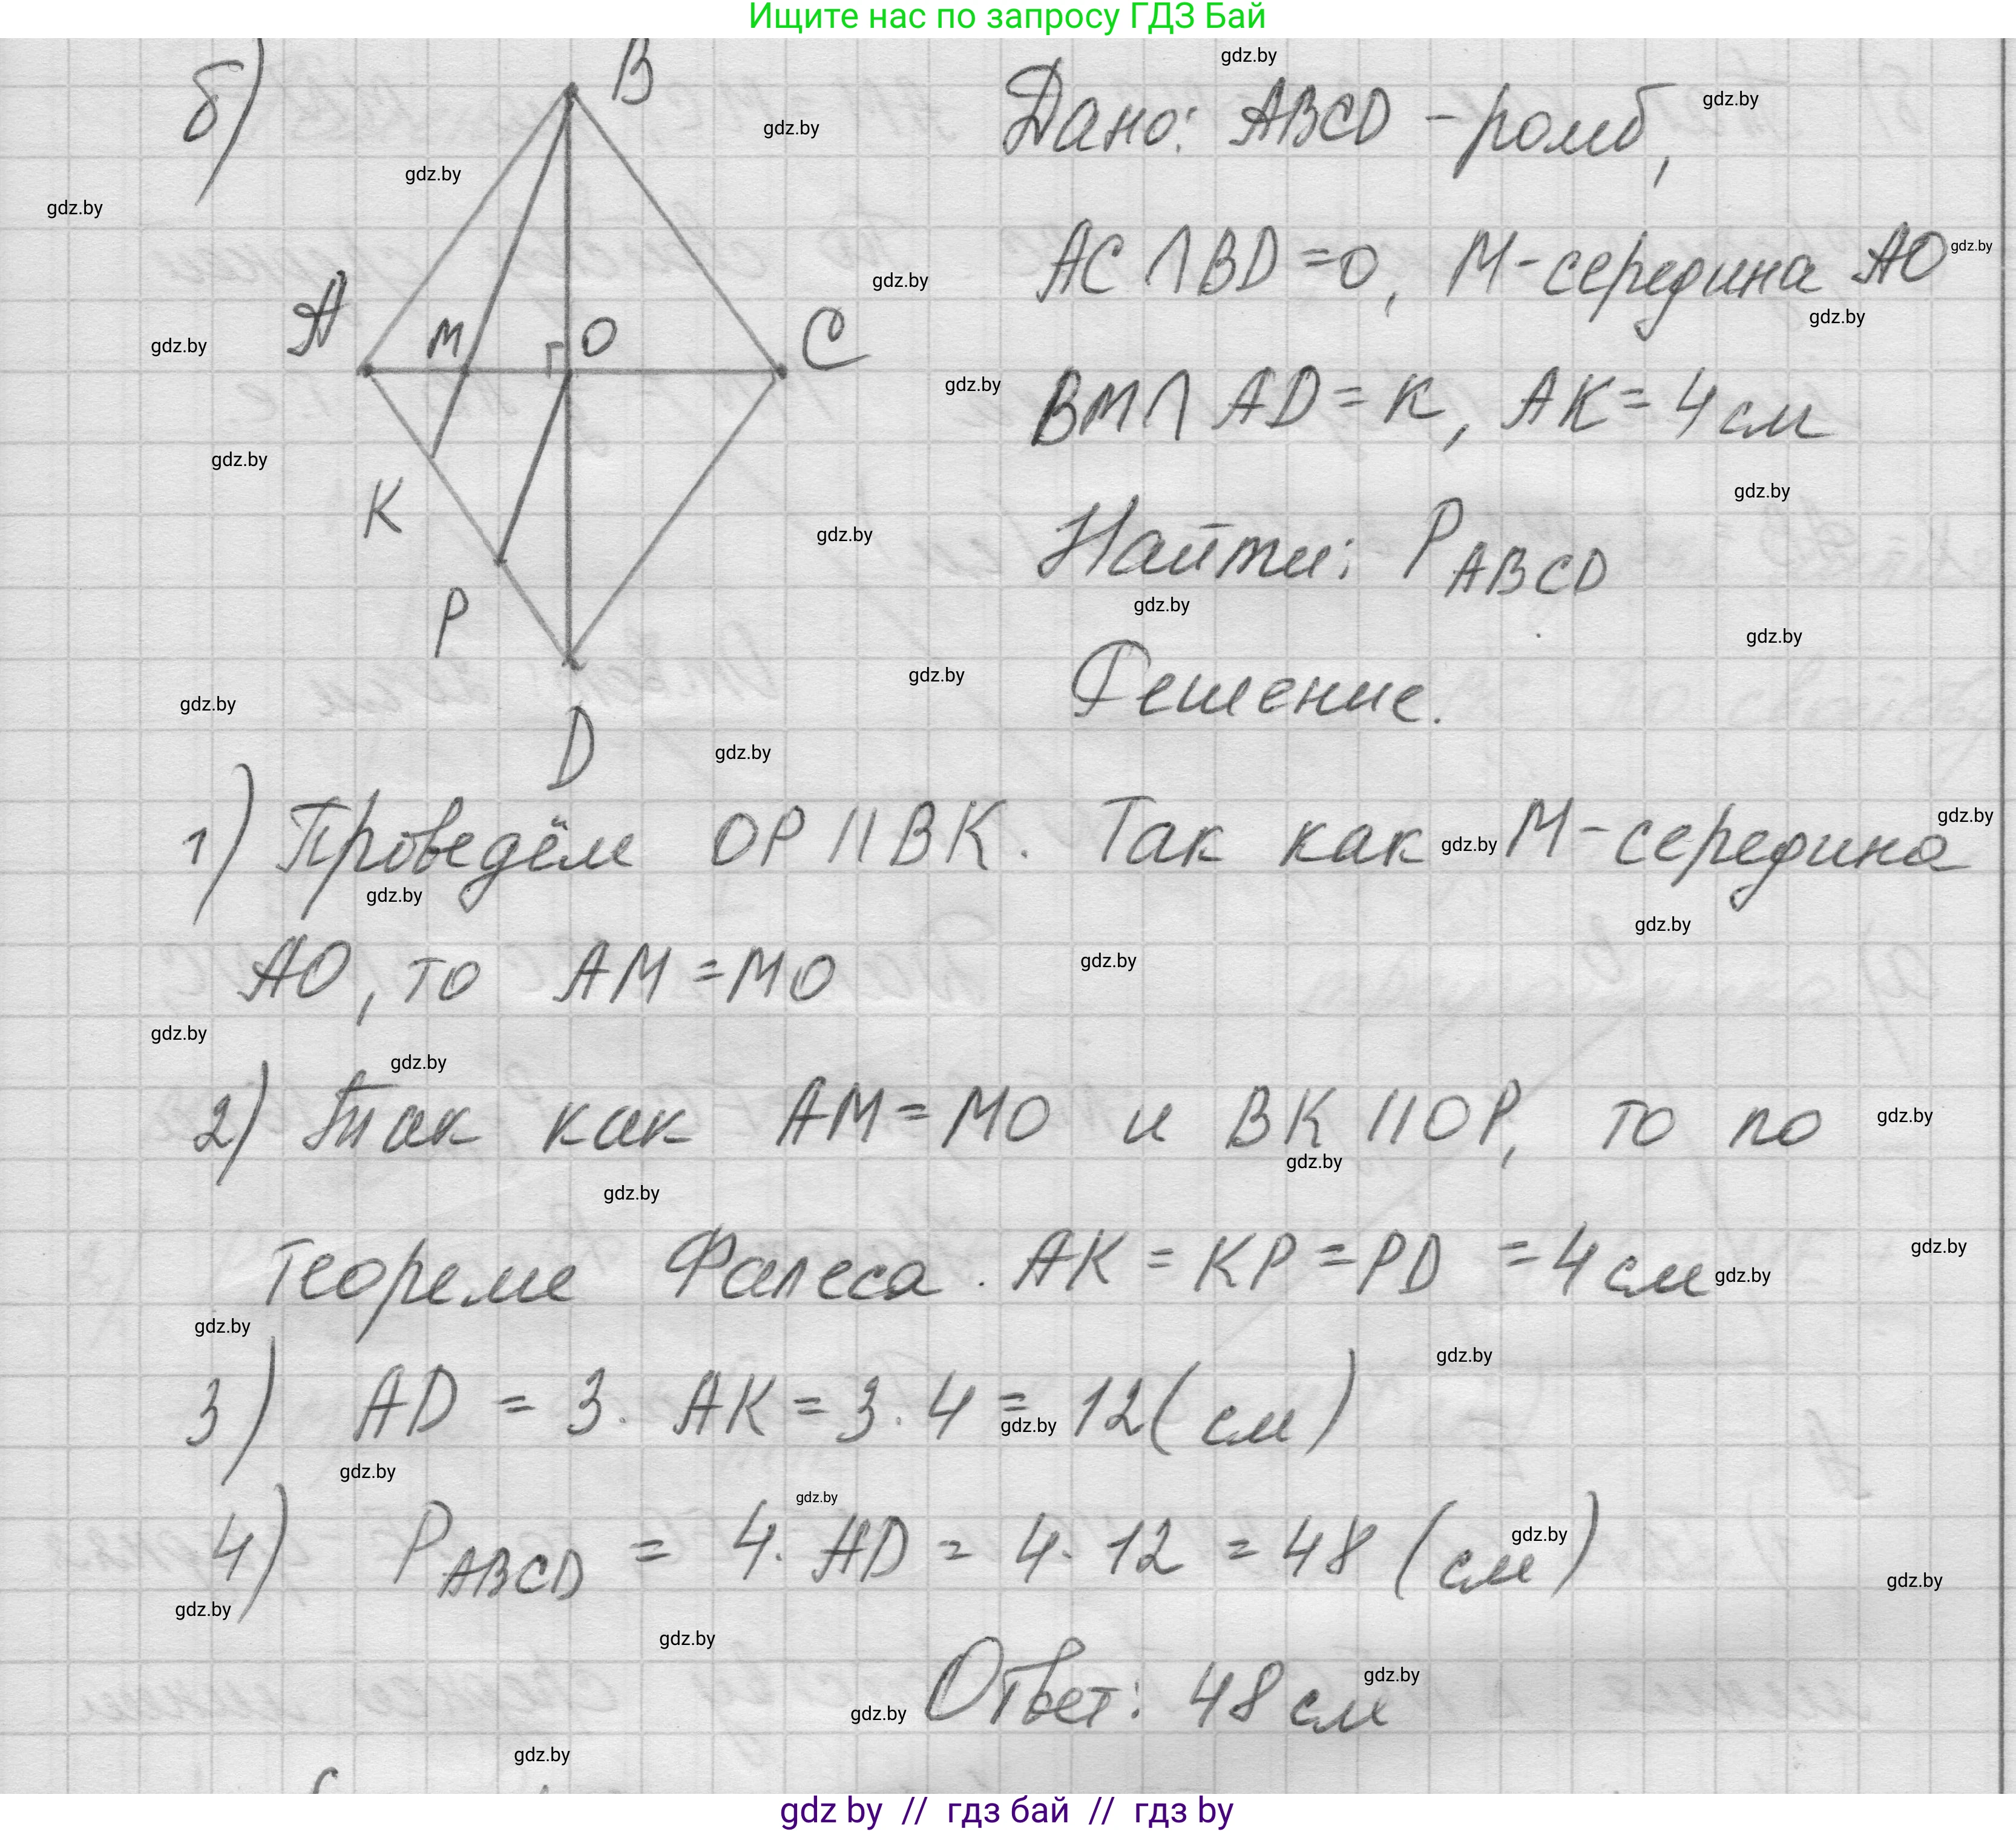 Ищите нас по запросу ГДЗ Бай
б)
B
Дано: ABCD - ромб,
AC ∩ BD = O, M - середина AO
A
M
O
C
BM ∩ AD = K, AK = 4 см
K
Найти: P ABCD
P
Решение.
D
1) Проведём OP || BK. Так как M - середина
AO, то AM = MO
2) Так как AM = MO и BK || OP, то по
теореме Фалеса. AK = KP = PD = 4 см
3) AD = 3 · AK = 3 · 4 = 12 (см)
4) P ABCD = 4 · AD = 4 · 12 = 48 (см)
Ответ: 48 см
gdz.by
gdz by // гдз бай // гдз by